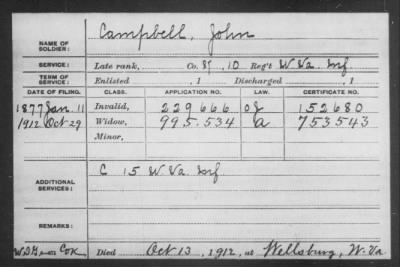 NAME OF SOLDIER: Campbell, John
SERVICE: Late rank, Co. , 10 Reg't W Va Inf
TERM OF SERVICE: Enlisted , 1 Discharged , 1
DATE OF FILING. CLASS. APPLICATION NO. LAW. CERTIFICATE NO.
1877 Jan. 11 Invalid, 229666 152680
1912 Oct 29 Widow, 995.534 a 753543
Minor,
ADDITIONAL SERVICES: C 15 W Va Inf
REMARKS:
Died Oct 13, 1912, at Wellsburg, W. Va